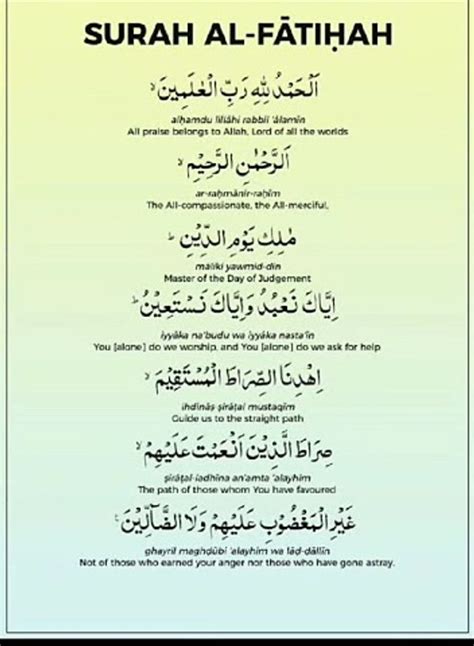 SURAH AL-FĀTIḤAH
اَلْحَمْدُ لِلّٰهِ رَبِّ الْعٰلَمِيْنَ ۙ
alḥamdu lillāhi rabbil 'ālamīn
All praise belongs to Allah, Lord of all the worlds
اَلرَّحْمٰنِ الرَّحِيْمِ ۙ
ar-raḥmānir-raḥīm
The All-compassionate, the All-merciful.
مٰلِكِ يَوْمِ الدِّيْنِ ؕ
māliki yawmid-dīn
Master of the Day of Judgement
اِيَّاكَ نَعْبُدُ وَاِيَّاكَ نَسْتَعِيْنُ ؕ
iyyāka na'budu wa iyyāka nasta'īn
You [alone] do we worship, and You [alone] do we ask for help
اِهْدِنَا الصِّرَاطَ الْمُسْتَقِيْمَ ۙ
ihdināṣ ṣirāṭal mustaqīm
Guide us to the straight path
صِرَاطَ الَّذِيْنَ اَنْعَمْتَ عَلَيْهِمْ ۙ
ṣirāṭal-ladhīna an'amta 'alayhim
The path of those whom You have favoured
غَيْرِ الْمَغْضُوْبِ عَلَيْهِمْ وَلَا الضَّآلِّيْنَ
ghayril maghḍūbi 'alayhim wa lāḍ-ḍāllīn
Not of those who earned your anger nor those who have gone astray.